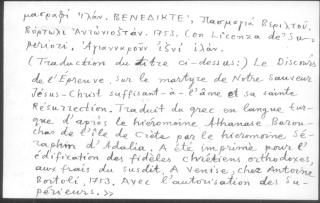 μασραφὶ ἰλὰν. ΒΕΝΕΔΙΚΤΕ', Πασμαγιὰ Βεριλτοῦ.
Βόρτωλι Ἀντώνιοσταν. 1753. Con Licenza de' Su-
periori. Ἀγιαννηροῦν ἰζνὶ ἰλάν.
(Traduction du titre ci-dessus:) Le Discours
de l'Épreuve. Sur le martyre de Notre Sauveur
Jésus-Christ suffisant à l'âme et sa sainte
Résurrection. Traduit du grec en langue tur-
que d'après le hiéromoine Athanase Barou-
chas de l'île de Crète par le hiéromoine Sé-
raphin d'Adalia. A été imprimé pour l'
édification des fidèles chrétiens orthodoxes,
aux frais du susdit. A Venise, chez Antoine
Bortoli, 1753. Avec l'autorisation des Su-
périeurs.»